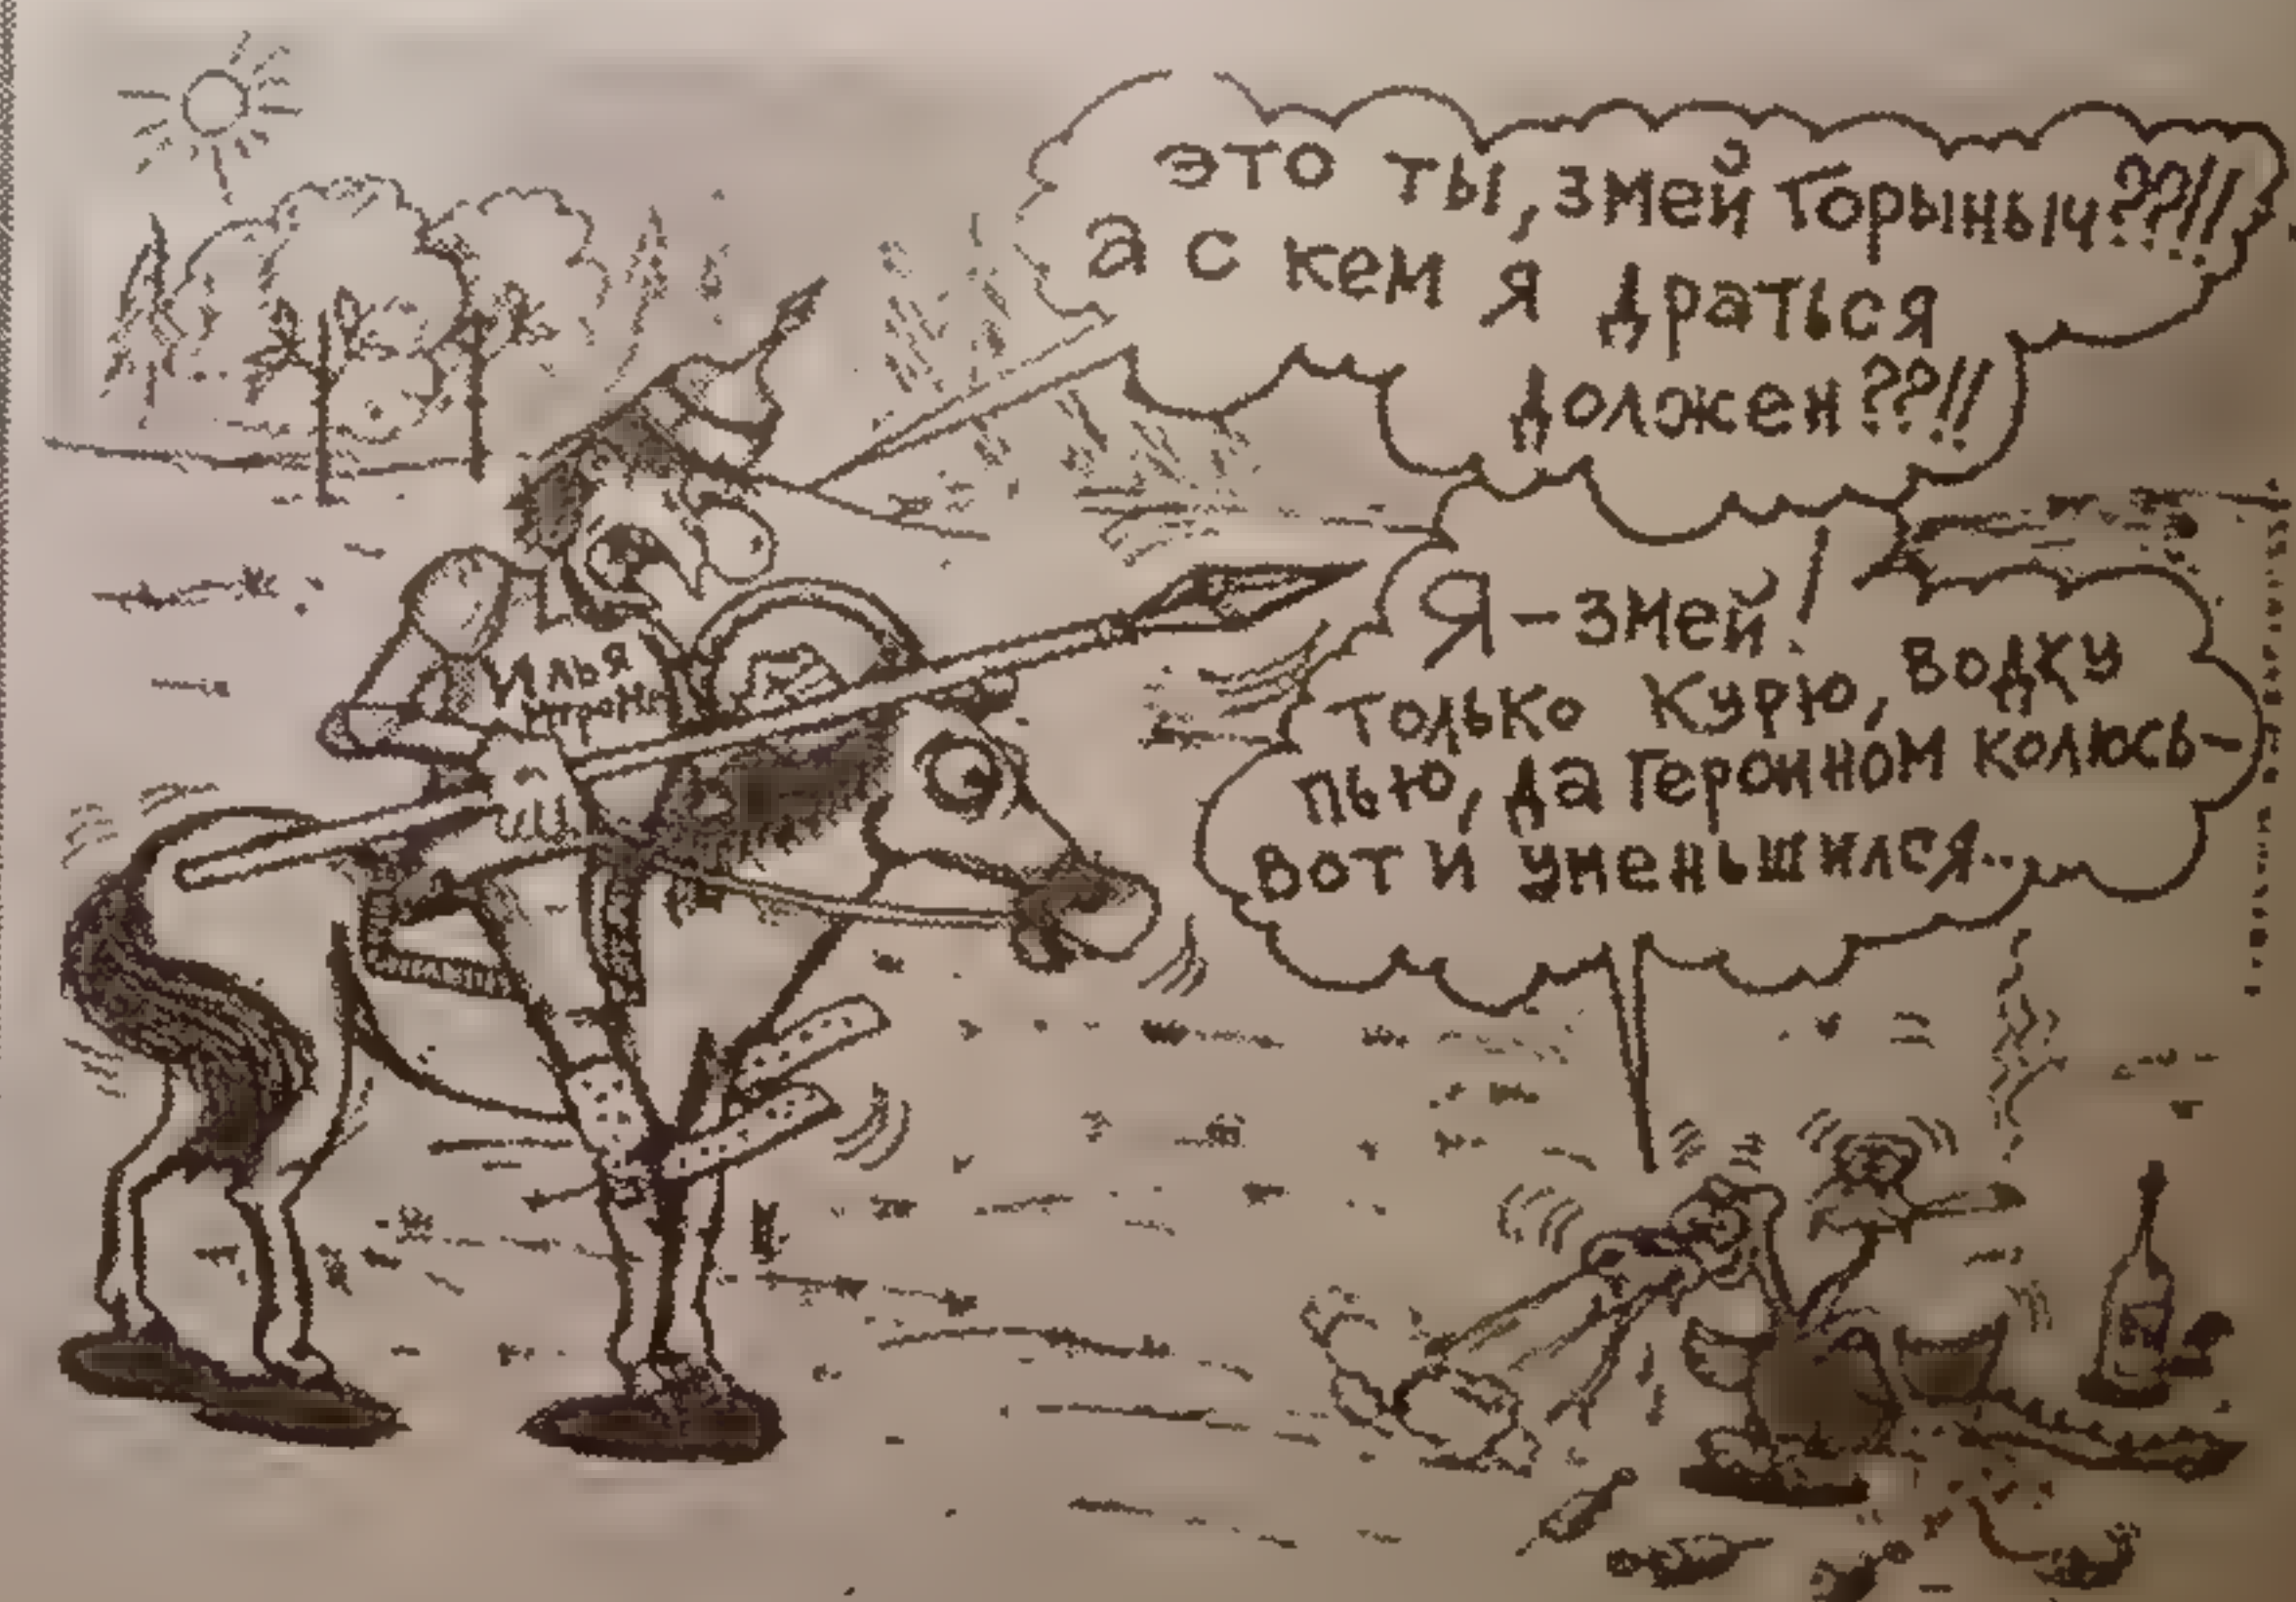 это ты, змей Горыныч??!!
а с кем я драться
должен??!!
Я - змей!
только курю, водку
пью, да героином колюсь -
вот и уменьшился..
Илья